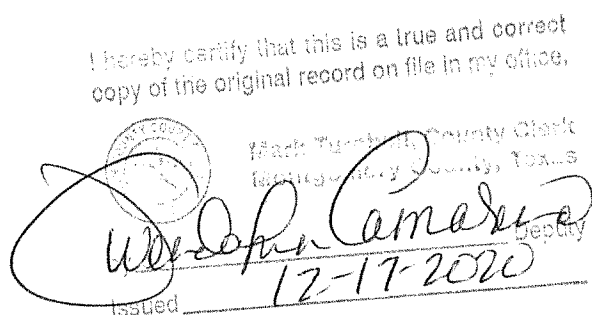 I hereby certify that this is a true and correct
copy of the original record on file in my office,
COUNTY COURT
Mark Turnbull, County Clerk
Montgomery County, Texas
Deputy
Issued 12-17-2020